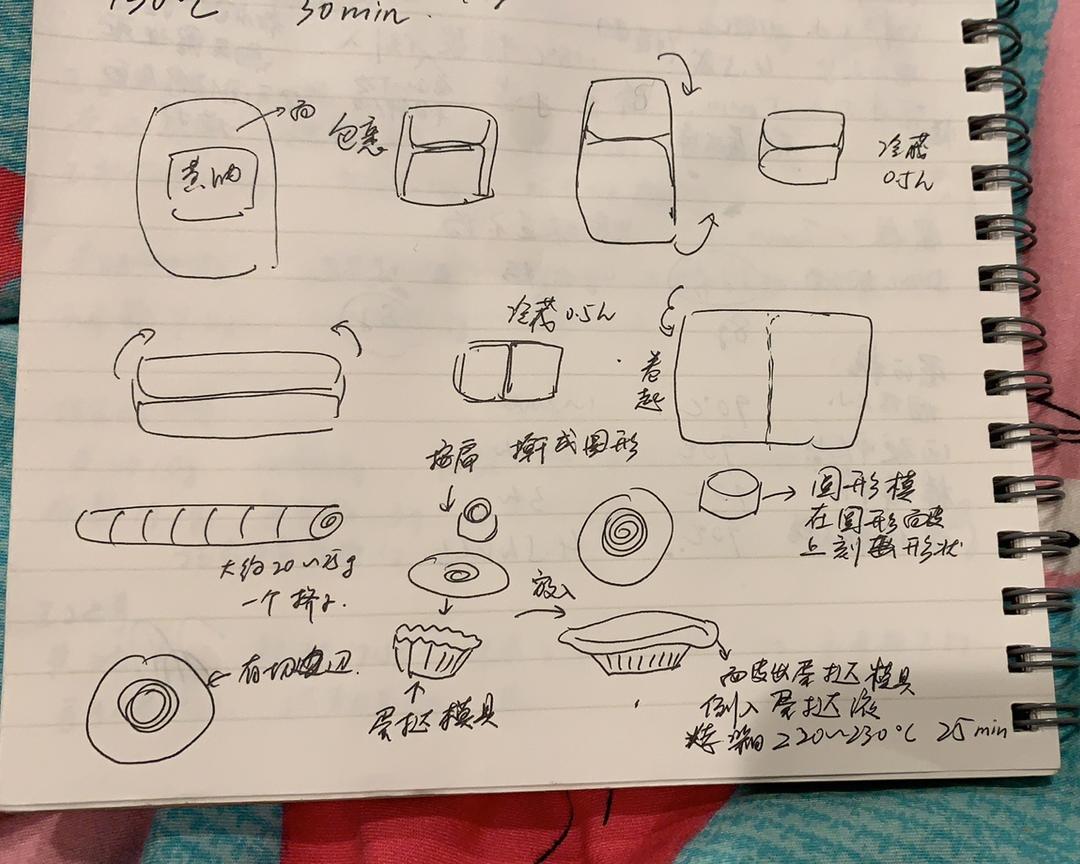 30min.
面
黄油
包裹
冷藏
0.5h
冷藏 0.5h
卷
起
按扁 擀成圆形
圆形模
在圆形面皮
上刻 形状
大约20~25g
一个挤子.
放入
有切边.
蛋挞模具
面皮 蛋挞模具
倒入蛋挞液
烤箱 220~230℃ 25min